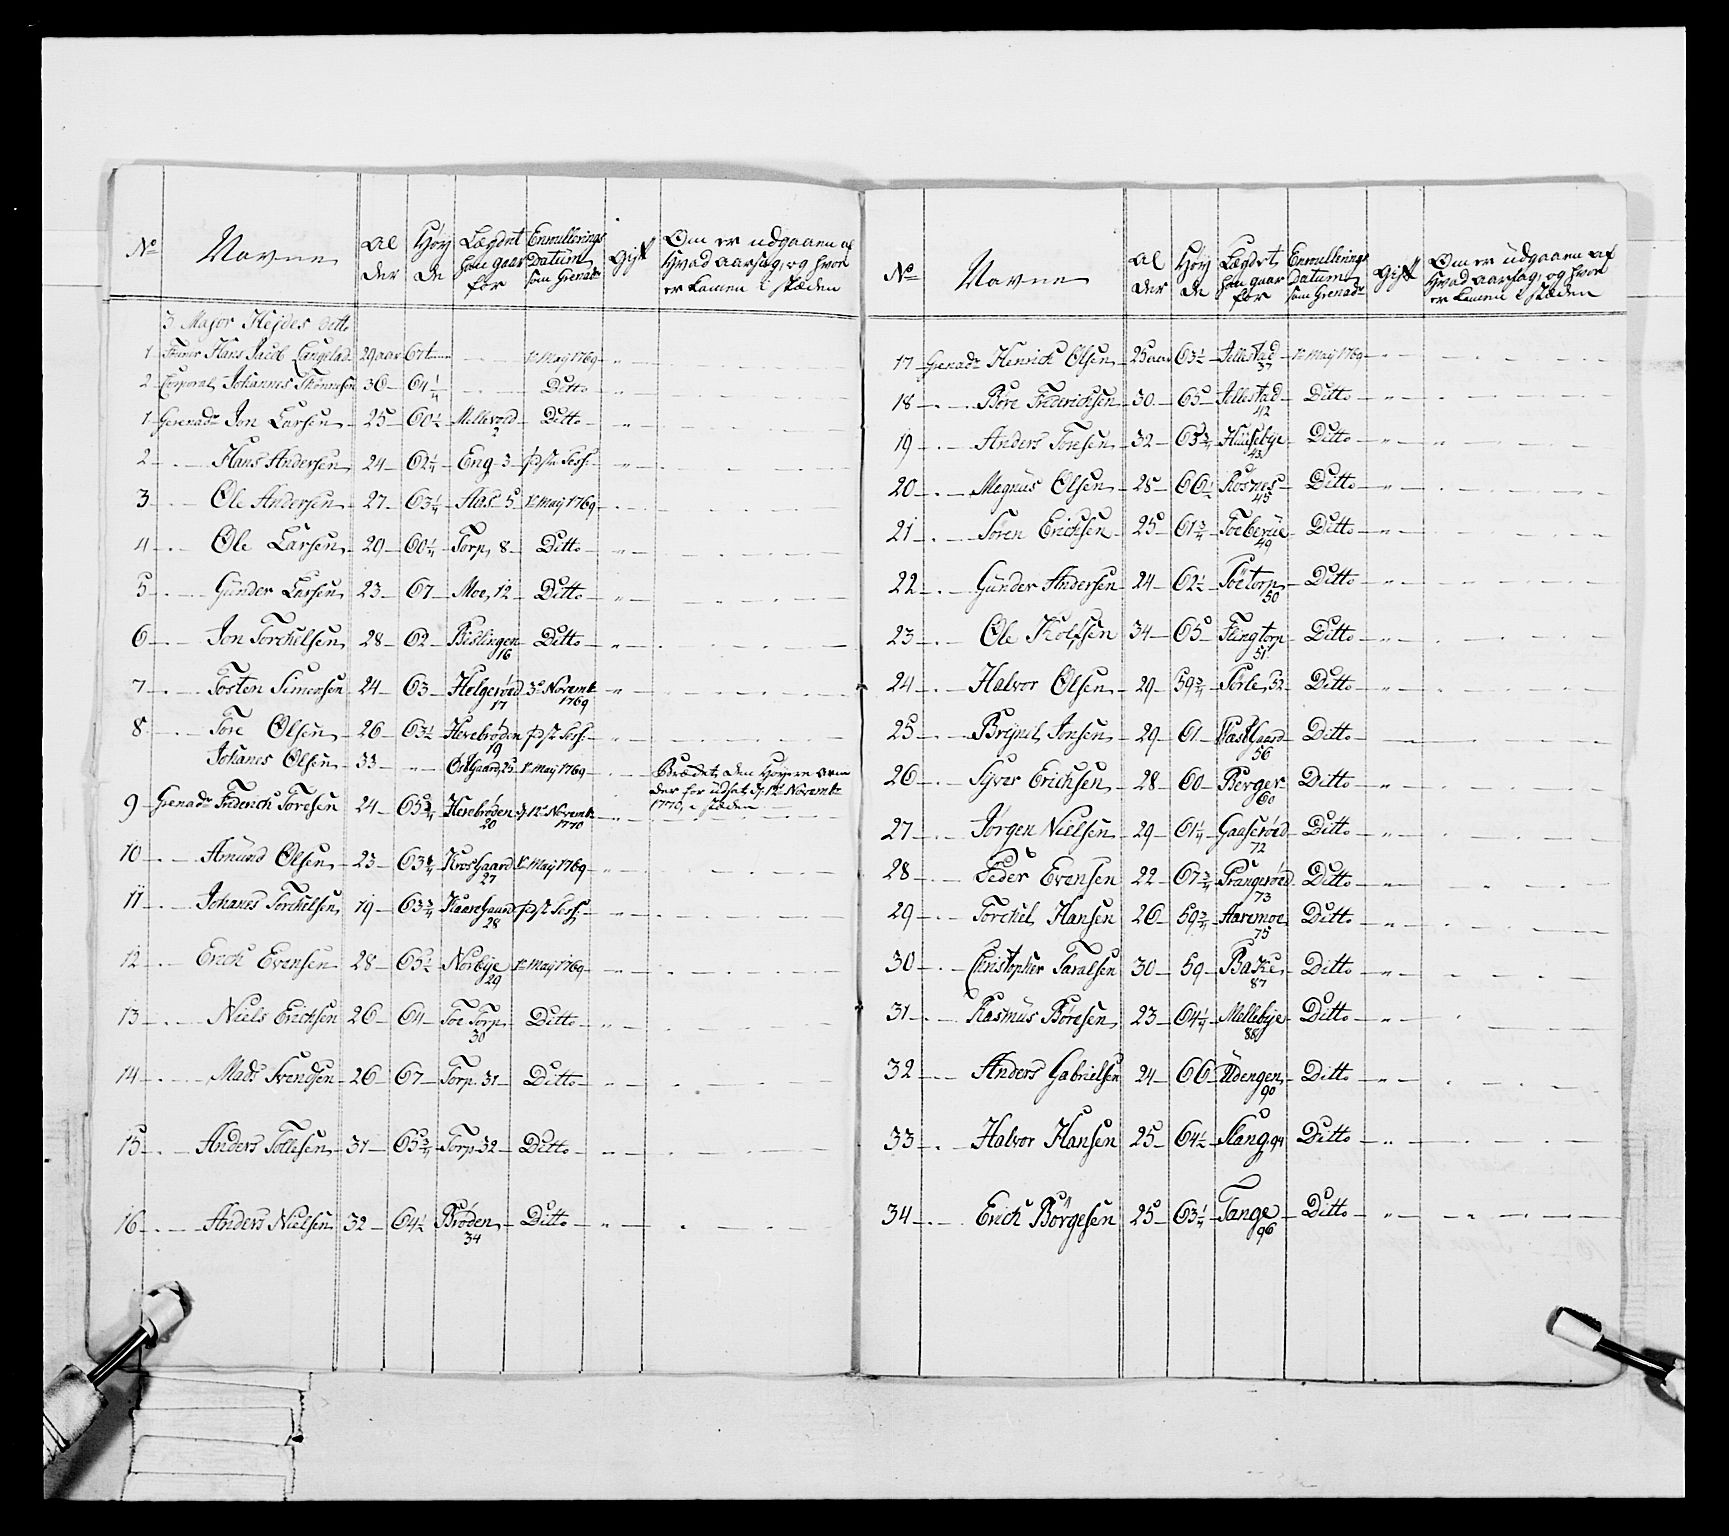 No Navne Al der Høy de Lægdet han gaar for Enrullerings Datum som Grenadr Gift Om er udgaaen af Hvad aarsag, og hvor er kamen i stæden
3 Major Hejdes Ditto
1 Hans Jacob 29 aar 67 1e May 1769
2 Corporal Johannes 36 64 1/4 Ditto
1 Gerenadr Jon Larsen 25 60 1/2 2 Ditto
2 Hans Andersen 24 62 1/4 Eng 3
3 Ole Andersen 27 63 1/4 Aas 5 1e May 1769
4 Ole Larsen 29 60 1/4 Torp, 8 Ditto
5 Gunder Larsen 23 67 Moe, 12 Ditto
6 Jon Torchelsen 28 62 Bislingen 16 Ditto
7 Tosten Simensen 24 63 Helgerøed 17 3e Novembr 1769
8 Tore Olsen 26 63 1/2 Herebrøden 19
Johanes Olsen 33 Østgaard, 25 1e May 1769
9 Grenadr Frderich Toresen 24 65 3/4 Herebrøden 20 d 12 Novembr 1770
10 Amund Olsen 23 63 3/4 Krosgaard 27 1e May 1769
11 Johanes Torchelsen 19 63 3/4 28
12 Erich Evensen 28 65 1/2 Norbye 29 1e May 1769
13 Niels Erichsen 26 64 Toe Torp 30 Ditto
14 Mads Svendsen 26 67 Torp 31 Ditto
15 Anders Tollesen 31 65 3/4 Torp 32 Ditto
16 Anders Nielsen 32 64 1/2 Brøden 34 Ditto
No Navne Al der Høy de Lægdet han gaar for Enrullerings Datum som Grenadr Gift Om er udgaaen af Hvad aarsag, og hvor er kamen i stæden
17 Grenadr Henrich Olsen 25 aar 63 1/2 Jellestad 37 1e May 1769
18 Bere Frederichsen 30 65 Jellestad 42 Ditto
19 Anders Toresen 32 63 3/4 Huusebye 43 Ditto
20 Megnus Olsen 28 66 1/2 Rosnes 45 Ditto
21 Søren Erichsen 25 61 3/4 49 Ditto
22 Gunder Andersen 24 62 1/2 50 Ditto
23 Ole Rolfsen 34 65 51 Ditto
24 Halvor Olsen 29 59 3/4 52 Ditto
25 Brynil Jonsen 29 61 56 Ditto
26 Syver Erichsen 28 60 Berger 60 Ditto
27 Jørgen Nielsen 29 61 1/4 Gaaserøed 72 Ditto
28 Peder Evensen 22 67 3/4 Prangerøed 73 Ditto
29 Torchel Hansen 26 59 3/4 Haremoe 75 Ditto
30 Christopher Taralsen 30 59 Bakke 87 Ditto
31 Rasmus Børesen 23 64 1/4 Mellebye 88 Ditto
32 Anders Gabrielsen 24 66 Udengen 90 Ditto
33 Halvor Hansen 25 64 1/2 Slang 94 Ditto
34 Erich Børgesen 25 63 1/4 Tange 96 Ditto